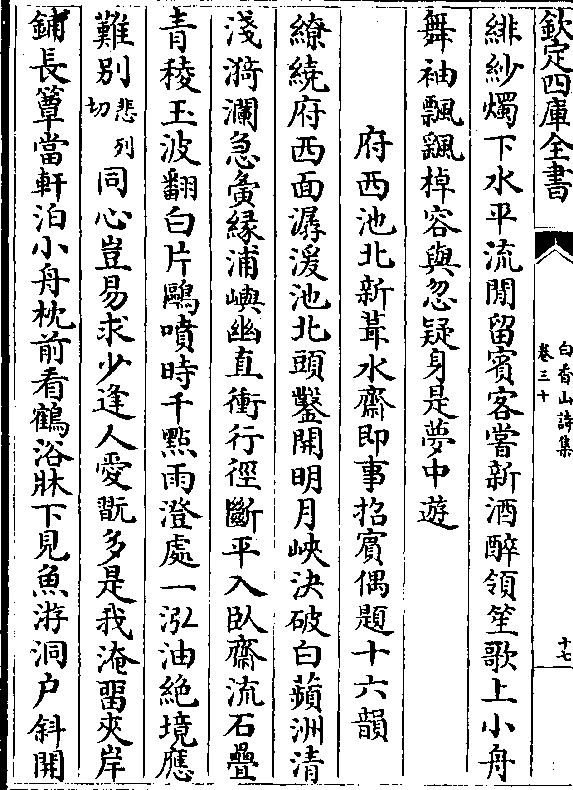 欽定四庫全書
白香山詩集
卷三十
十七
緋紗燭下水平流閒留賓客嘗新酒醉領笙歌上小舟
舞袖飄飖棹容與忽疑身是夢中遊
府西池北新葺水齋即事招賓偶題十六韻
繚繞府西面潺湲池北頭鑿開明月峽決破白蘋洲清
淺漪瀾急夤緣浦嶼幽直衝行徑斷平入臥齋流石疊
青稜玉波翻白片鷗噴時千點雨澄處一泓油絶境應
難別悲列切同心豈易求少逢人愛翫多是我淹留夾岸
鋪長簟當軒泊小舟枕前看鶴浴牀下見魚游洞户斜開